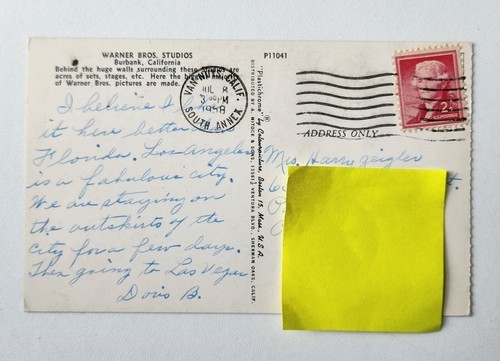 WARNER BROS. STUDIOS
Burbank, California
Behind the huge walls surrounding these are
acres of sets, stages, etc. Here the big
of Warner Bros. pictures are made.
P11041
VAN NUYS, CALIF.
JUL 8
3 PM
1958
SOUTH ANNEX
2¢
ADDRESS ONLY
"Plastichrome" by Colourpicture, Boston 15, Mass., U.S.A.
DISTRIBUTED BY
13561 VENTURA BLVD., SHERMAN OAKS, CALIF.
I believe I
it here better
Florida. Los Angeles
is a fabulous city.
We are staying on
the outskirts of the
city for a few days.
Then going to Las Vegas
Doris B.
Mrs. Harry